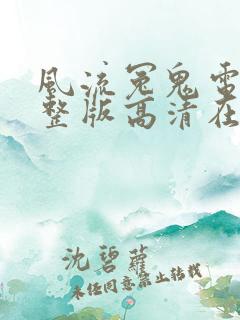 风流冤鬼雷
整版高清在
沈碧萝
未经同意禁止转载